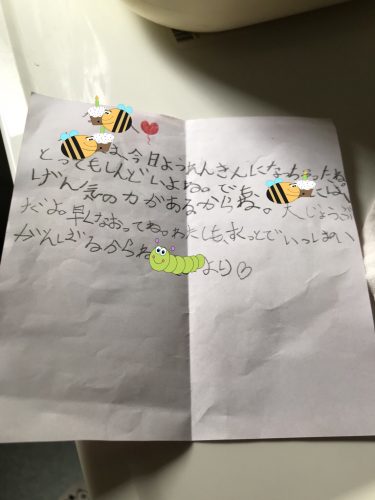 は、今日ようれんきんになっちゃったね
とってもしんどいよね。でも、には
げん気の力があるからね。大じょうぶ
だよ。早くなおってね。わたしも、ずっとでいっしょうけんめい
がんばるからね
より♡